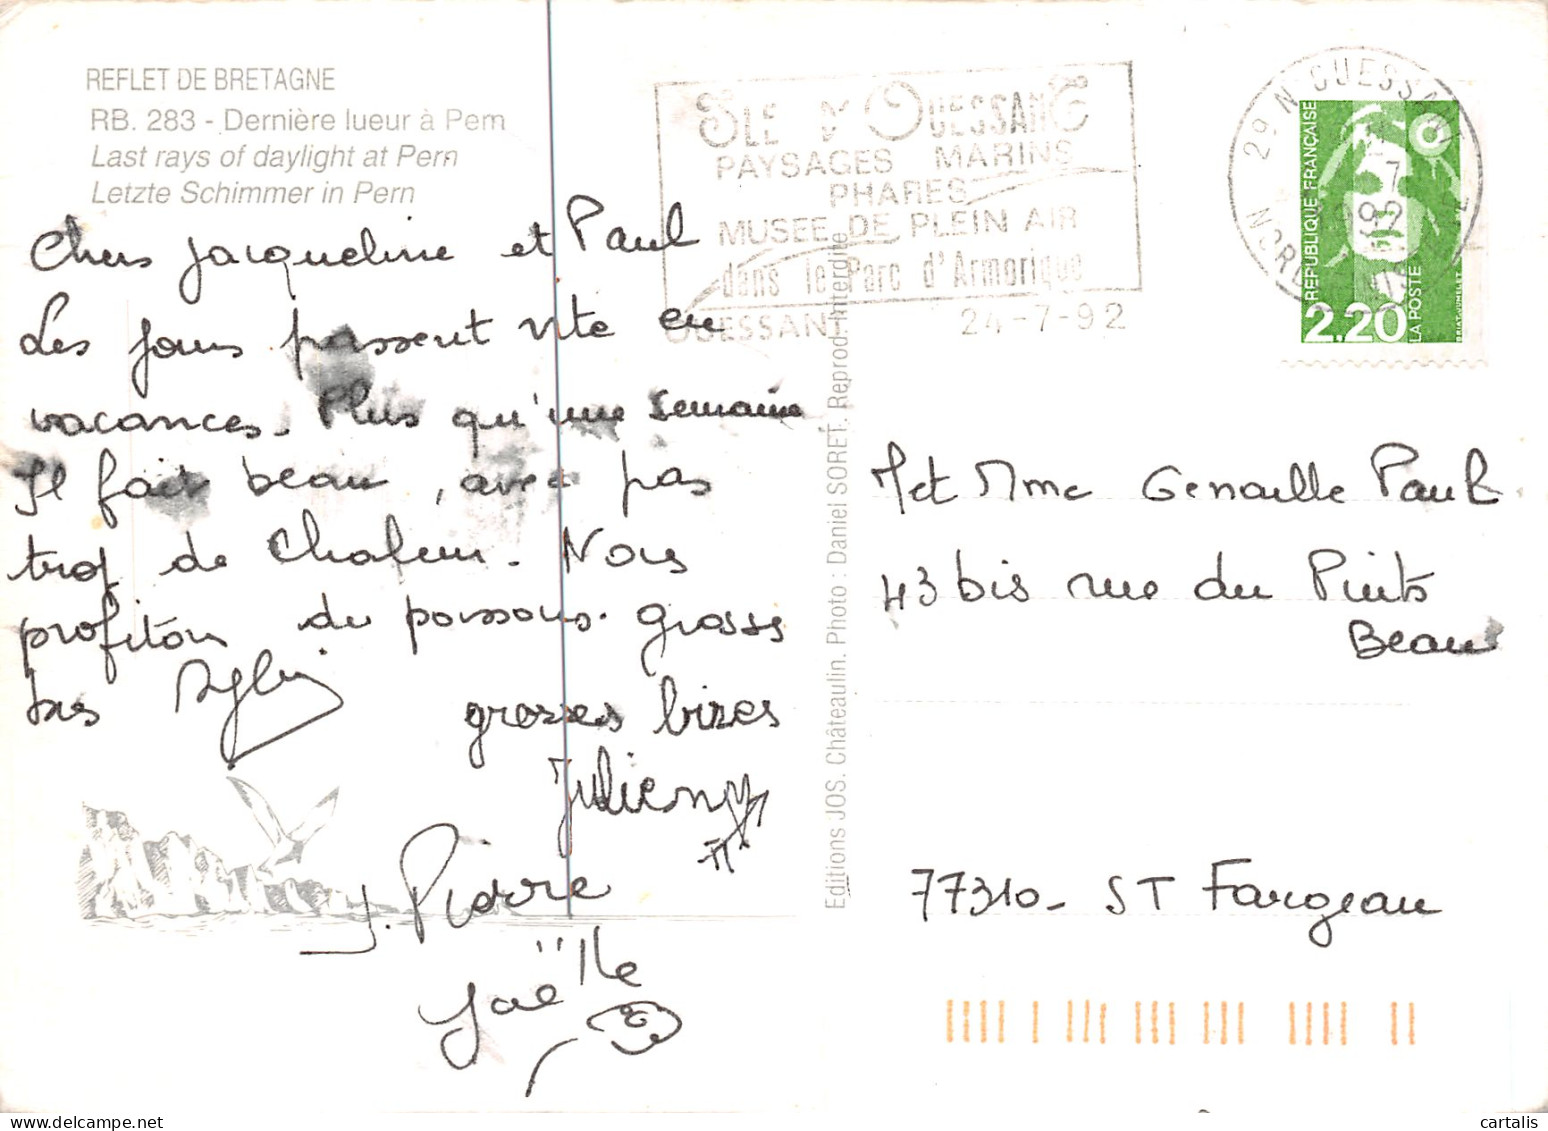 REFLET DE BRETAGNE
RB. 283 - Dernière lueur à Pern
Last rays of daylight at Pern
Letzte Schimmer in Pern
Chers Jacqueline et Paul
Les jours passent vite en
vacances. Plus qu'une semaine
Il fait beau, avec pas
trop de chaleur. Nous
profitons du poissons. grosses
bises
grosses bizes
Julien
J. Pierre
Joëlle
ILE D'OUESSANT
PAYSAGES MARINS
PHARES
MUSEE DE PLEIN AIR
dans le Parc d'Armorique
OUESSANT 24-7-92
29 N OUESSANT
RÉPUBLIQUE FRANÇAISE
2,20
LA POSTE
Editions JOS. Châteaulin. Photo : Daniel SORET. Reprod. Interdite
M et Mme Genaille Paul
43 bis rue du Puits
Beau
77310 - ST Fargeau
cartalis